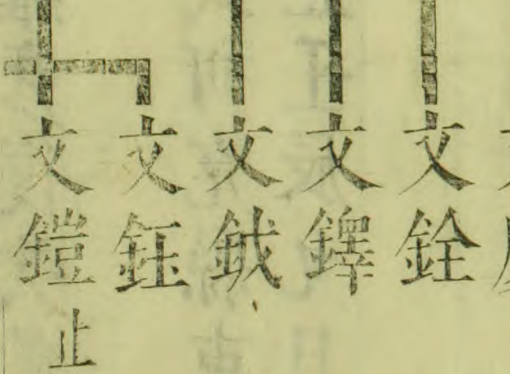 文銓
文鐸
文鉞
文鈺
文鎧止